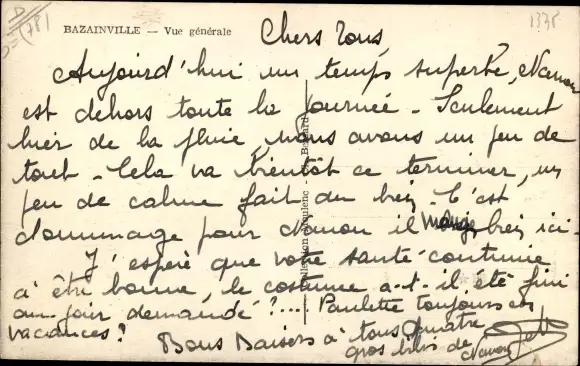 D
(78)
1338
BAZAINVILLE — Vue générale
Chers Tous,
Aujourd'hui un temps superbe, Nanou
est dehors toute la journée - Seulement
hier de la pluie, nous avons un peu de
tout - Cela va bientôt ce terminer, un
peu de calme fait du bien - C'est
dommage pour Nanou il mange bien ici -
J'espère que votre santé continue
à être bonne, le costume a-t-il été fini
au jour demandé ?.... Paulette toujours en
vacances ?
Bons Baisers à tous quatre
gros bibis de Nanou
Collection